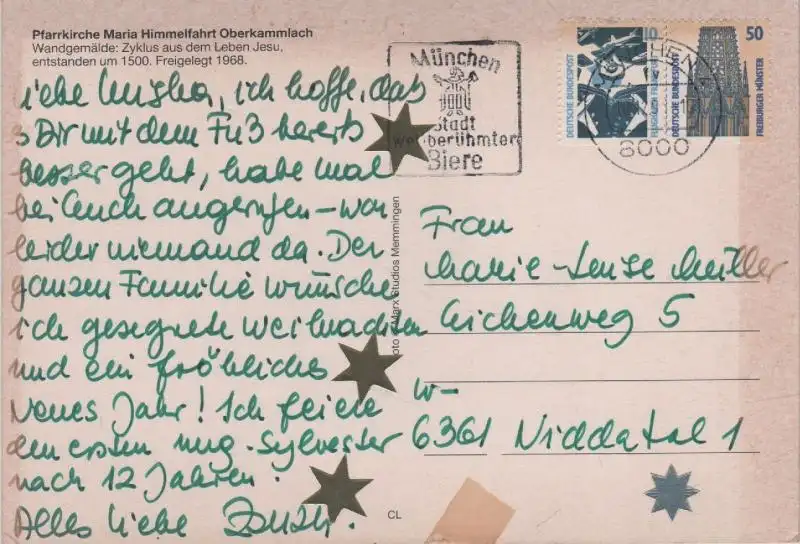 Pfarrkirche Maria Himmelfahrt Oberkammlach
Wandgemälde: Zyklus aus dem Leben Jesu,
entstanden um 1500. Freigelegt 1968.
liebe ich hoffe, daß
s Dir mit dem Fuß bereits
besser geht, habe mal
bei Euch angerufen – war
leider niemand da. Der
ganzen Familie wünsche
ich gesegnete Weihnachten
und ein fröhliches
Neues Jahr! Ich feiere
den ersten Sylvester
nach 12 Jahren.
Alles liebe
Foto Marx Studios Memmingen
CL
München
Stadt
weltberühmter
Biere
8000
10
DEUTSCHE BUNDESPOST
50
DEUTSCHE BUNDESPOST
FREIBURGER MÜNSTER
Frau
Marie-Luise Müller
Eichenweg 5
W-
6361 Niddatal 1